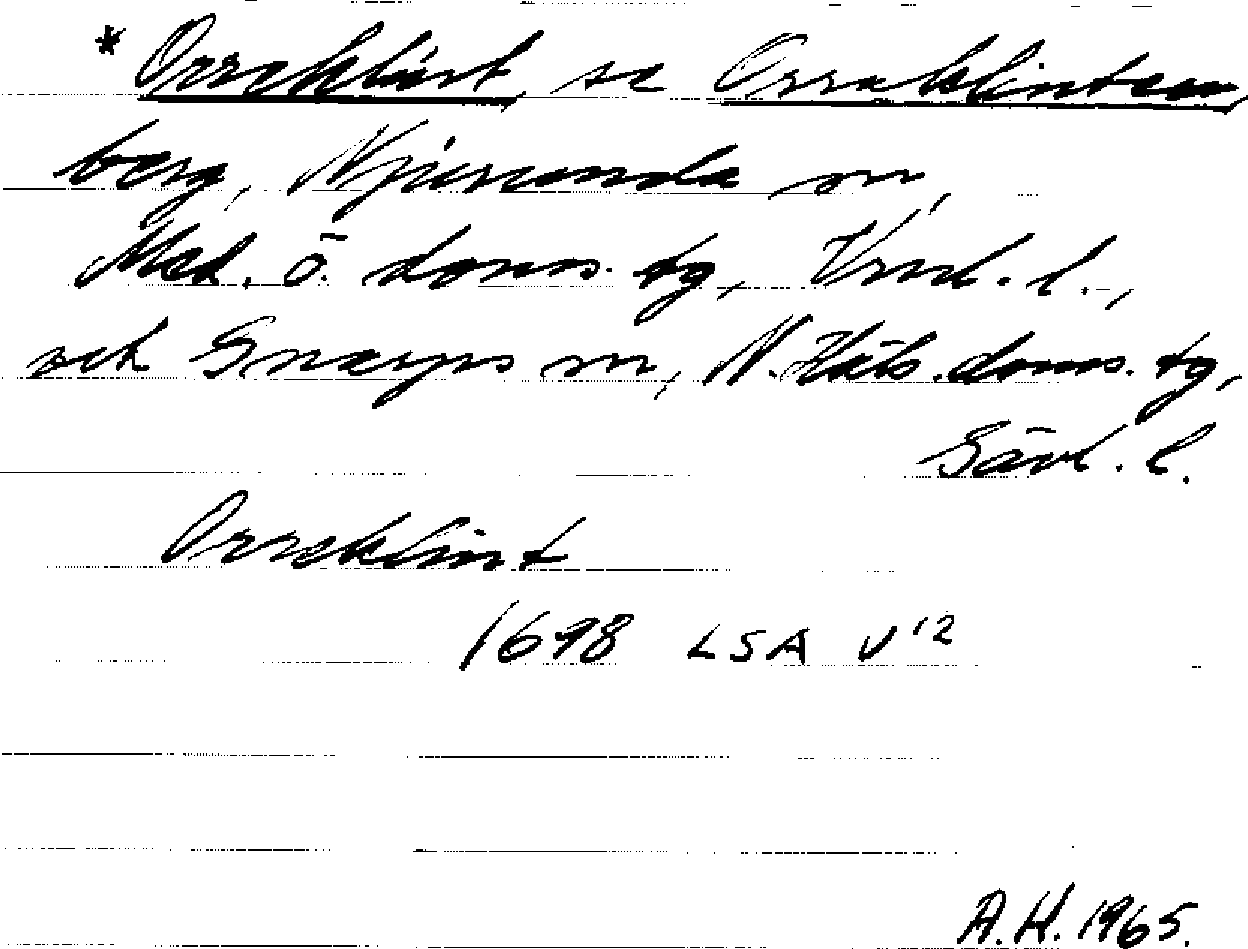 * Orreklint, se Orraklinten,
berg, Njurunda sn,
Med. Ö. doms. tg, Vnrl. l.,
och Gnarps sn, N. Häls. doms. tg,
Gävl. l.
Orreklint
1698 LSA V¹²
A.H. 1965.